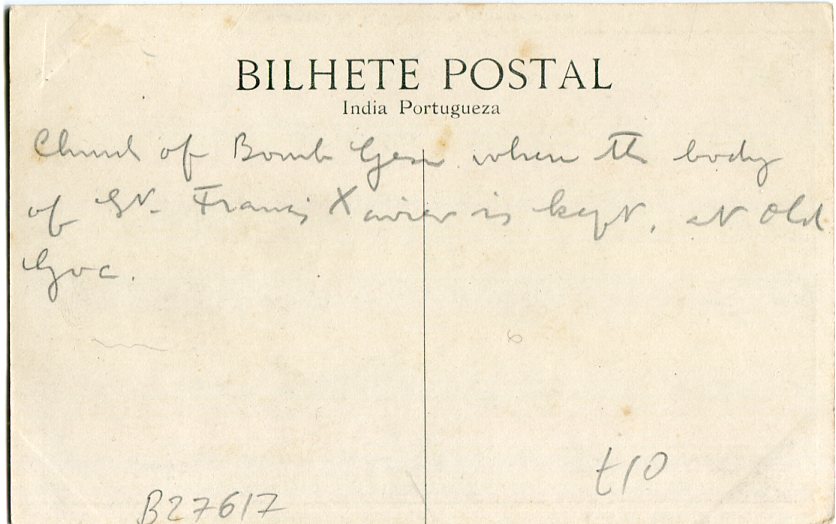 BILHETE POSTAL
India Portugueza
Church of Bomb Gesu where the body
of St. Francis Xavier is kept, at Old
Goa.
£10
B27617